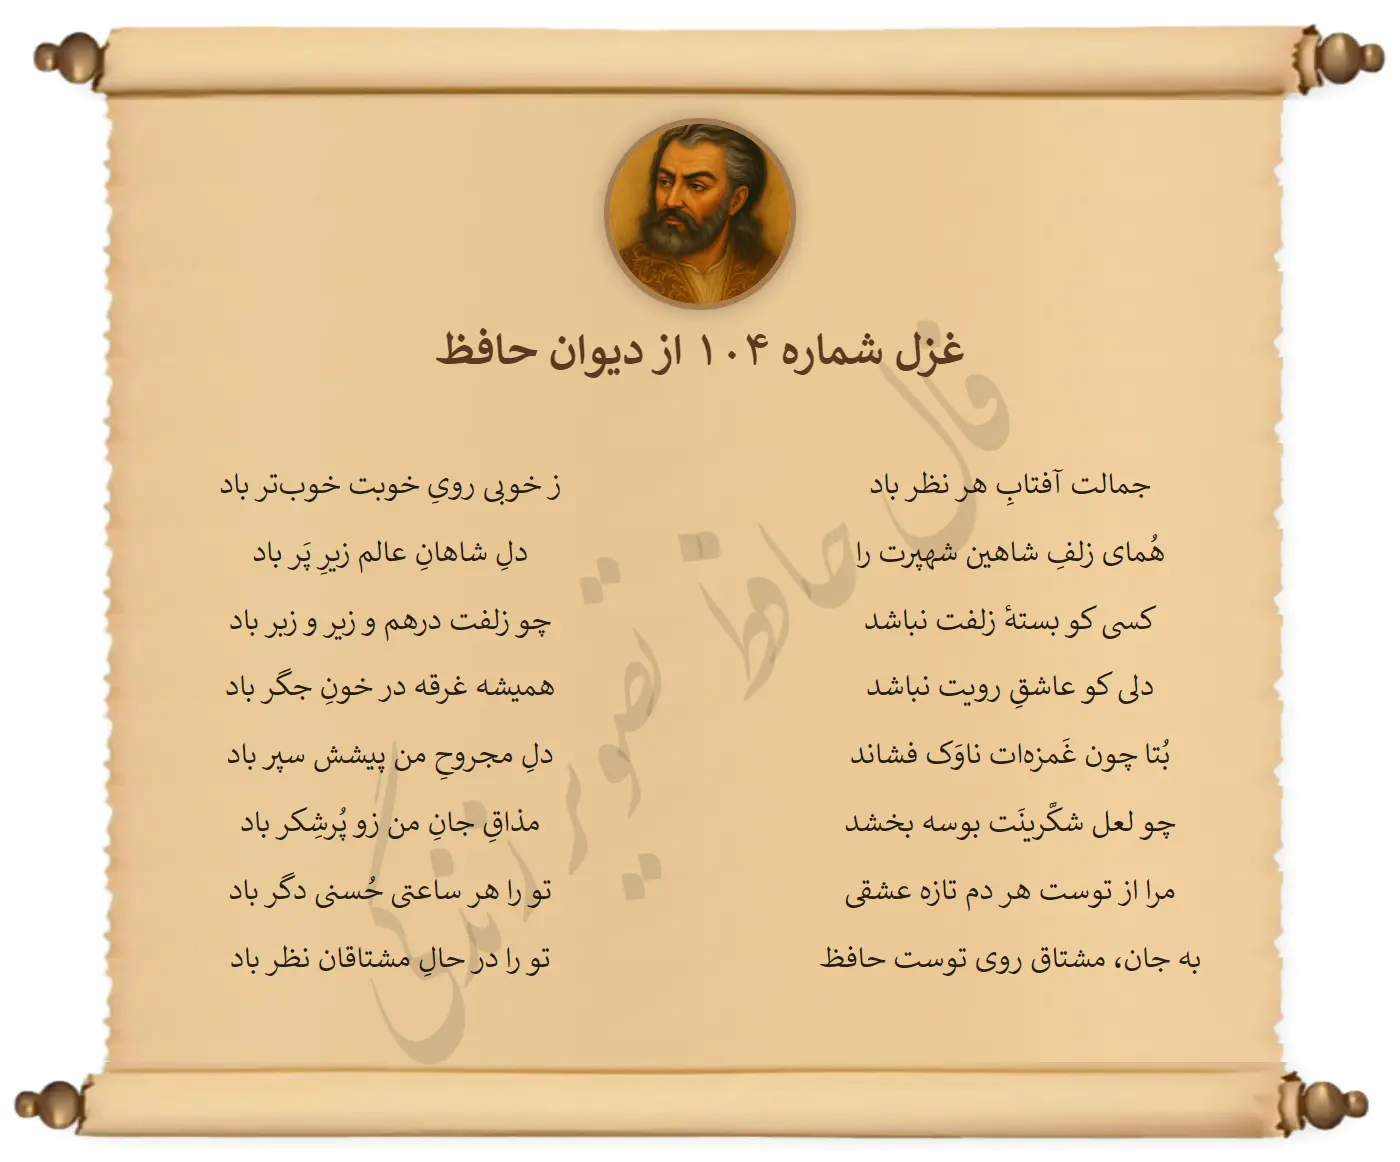 غزل شماره ۱۰۴ از دیوان حافظ
جمالت آفتابِ هر نظر باد ز خوبی رویِ خوبت خوب‌تر باد
هُمای زلفِ شاهین شهپرت را دلِ شاهانِ عالم زیرِ پَر باد
کسی کو بستهٔ زلفت نباشد چو زلفت درهم و زیر و زبر باد
دلی کو عاشقِ رویت نباشد همیشه غرقه در خونِ جگر باد
بُتا چون غَمزه‌ات ناوَک فشاند دلِ مجروحِ من پیشش سپر باد
چو لعل شکَّرینَت بوسه بخشد مذاقِ جانِ من زو پُرشِکر باد
مرا از توست هر دم تازه عشقی تو را هر ساعتی حُسنی دگر باد
به جان، مشتاق روی توست حافظ تو را در حالِ مشتاقان نظر باد
فال حافظ تصویر زندگی